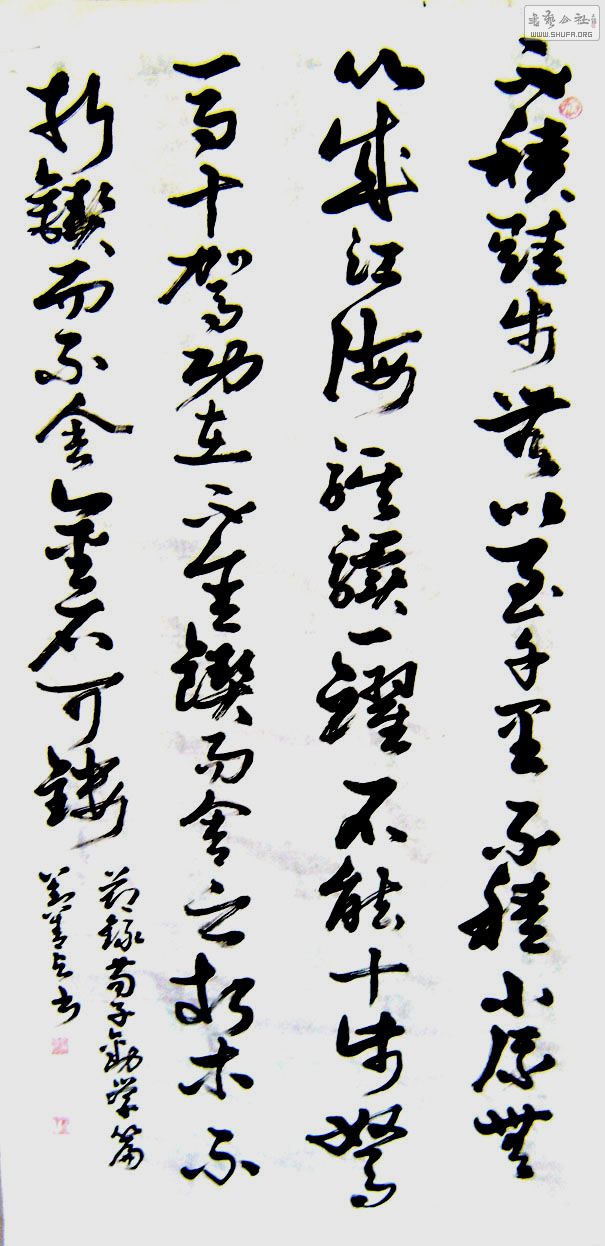 書藝公社
WWW.SHUFA.ORG
不積跬步無以至千里不積小流無
以成江海騏驥一躍不能十步駑
馬十駕功在不舍鍥而舍之朽木不
折鍥而不舍金石可鏤
節錄荀子勸學篇
書